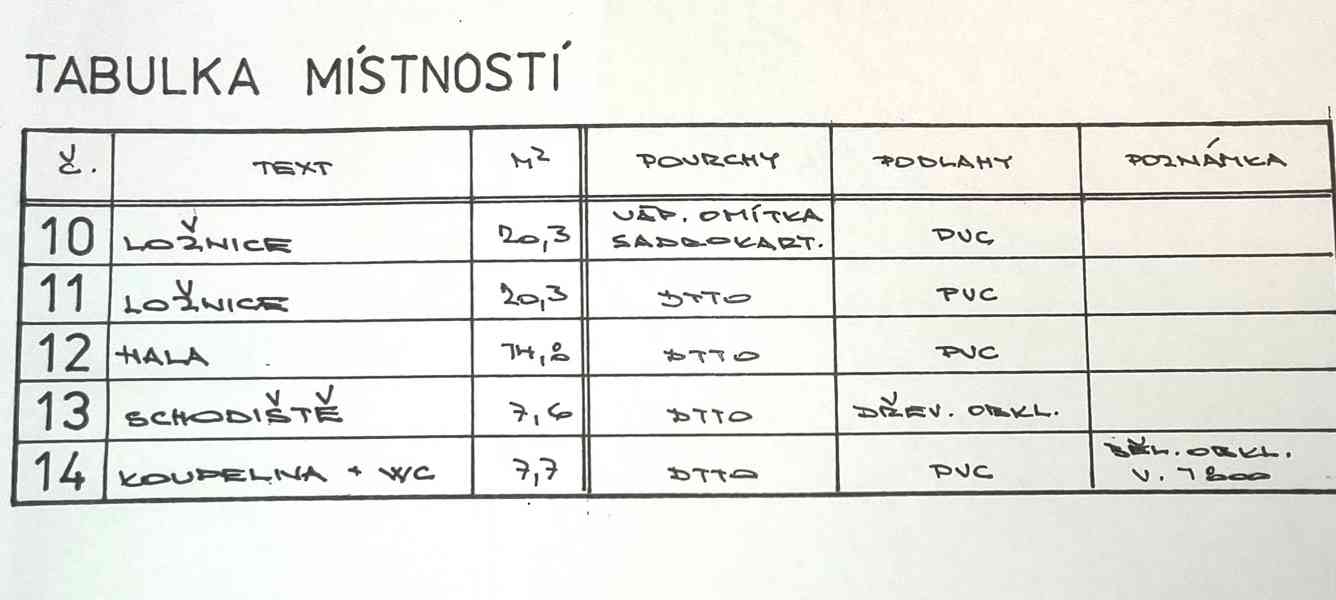 TABULKA MÍSTNOSTÍ
Č. TEXT M² POVRCHY PODLAHY POZNÁMKA
10 LOŽNICE 20,3 VÁP. OMÍTKA SADROKART. PVC
11 LOŽNICE 20,3 DTTO PVC
12 HALA 14,8 DTTO PVC
13 SCHODIŠTĚ 7,6 DTTO DŘEV. OBKL.
14 KOUPELNA + WC 7,7 DTTO PVC BĚL. OBKL. V. 1800